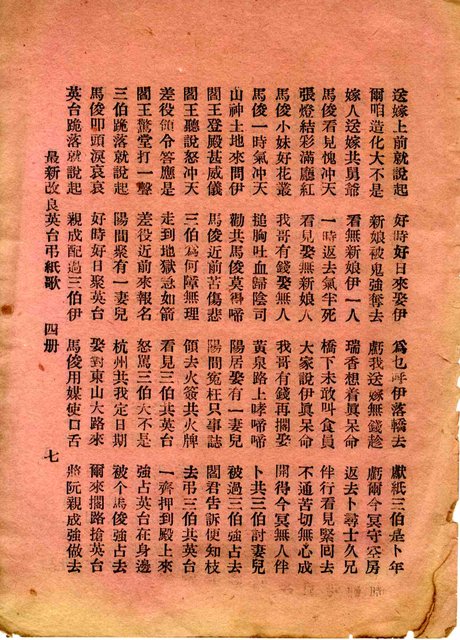 送嫁上前就說起 好時好日來娶伊 為乜呼伊落轎去 獻紙三伯是卜年
爾咱造化大不是 新娘被鬼強奪去 虧我送嫁無錢趁 虧爾今冥守空房
嫁人送嫁共舅爺 看無新娘伊一人 瑞香想着眞呆命 返去卜尋士久兄
馬俊看見愧冲天 一時返去氣半死 橋下未敢叫食員 伴行看見緊回去
張燈結彩滿廳紅 看見娶無新娘人 大家說伊眞呆命 不通苦切無心成
馬俊小妹好花叢 我哥有錢娶無人 我哥有錢再擱娶 開得今冥無人伴
馬俊一時氣冲天 搥胸吐血歸陰司 黃泉路上哮啼啼 卜共三伯討妻兒
山神土地來問伊 勸共馬俊莫得啼 陽居娶有一妻兒 被過三伯強占去
閻王登殿甚威儀 馬俊近前苦傷悲 陽間冤枉只事誌 閻君告訴便知枝
閻王聽說怒冲天 三伯為何障無理 領去火簽共火牌 去弔三伯共英台
差役領令答應是 走到地獄急如箭 看見三伯共英台 一齊押到殿上來
閻王驚堂打一擊 差役近前來報名 怒罵三伯大不是 強占英台在身邊
三伯跪落就說起 陽間聚有一妻兒 杭州共我定日期 被个馬俊強占去
馬俊叩頭淚哀哀 好時好日聚英台 娶對東山大路來 爾來擱路搶英台
英台跪落就說起 親成配過三伯伊 馬俊用媒使口舌 將阮親成強做去
最新改良英台弔紙歌 四册 七